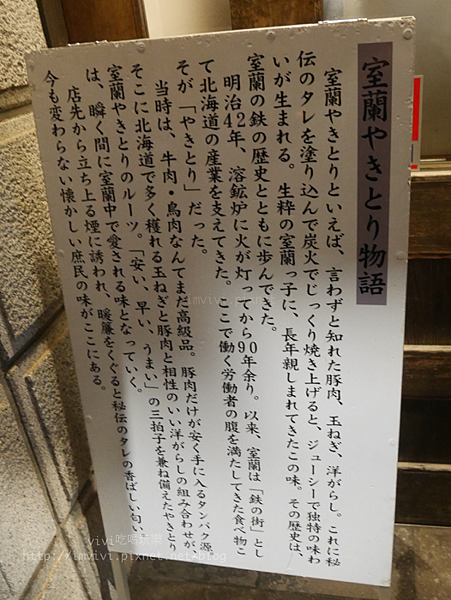 室蘭やきとり物語
室蘭やきとりといえば、言わずと知れた豚肉、玉ねぎ、洋がらし。これに秘
伝のタレを塗り込んで炭火でじっくり焼き上げると、ジューシーで独特の味わ
いが生まれる。生粋の室蘭っ子に、長年親しまれてきたこの味。その歴史は、
室蘭の鉄の歴史とともに歩んできた。
明治42年、溶鉱炉に火が灯ってから90年余り。以来、室蘭は「鉄の街」とし
て北海道の産業を支えてきた。ここで働く労働者の腹を満たしてきた食べ物こ
そが「やきとり」だった。
当時は、牛肉・鳥肉なんてまだ高級品。豚肉だけが安く手に入るタンパク源。
そこに北海道で多く穫れる玉ねぎと豚肉と相性のいい洋がらしの組み合わせが
室蘭やきとりのルーツ。「安い、早い、うまい」の三拍子を兼ね備えたやきとり
は、瞬く間に室蘭中で愛される味となっていく。
店先から立ち上る煙に誘われ、暖簾をくぐると秘伝のタレの香ばしい匂い、
今も変わらない懐かしい庶民の味がここにある。